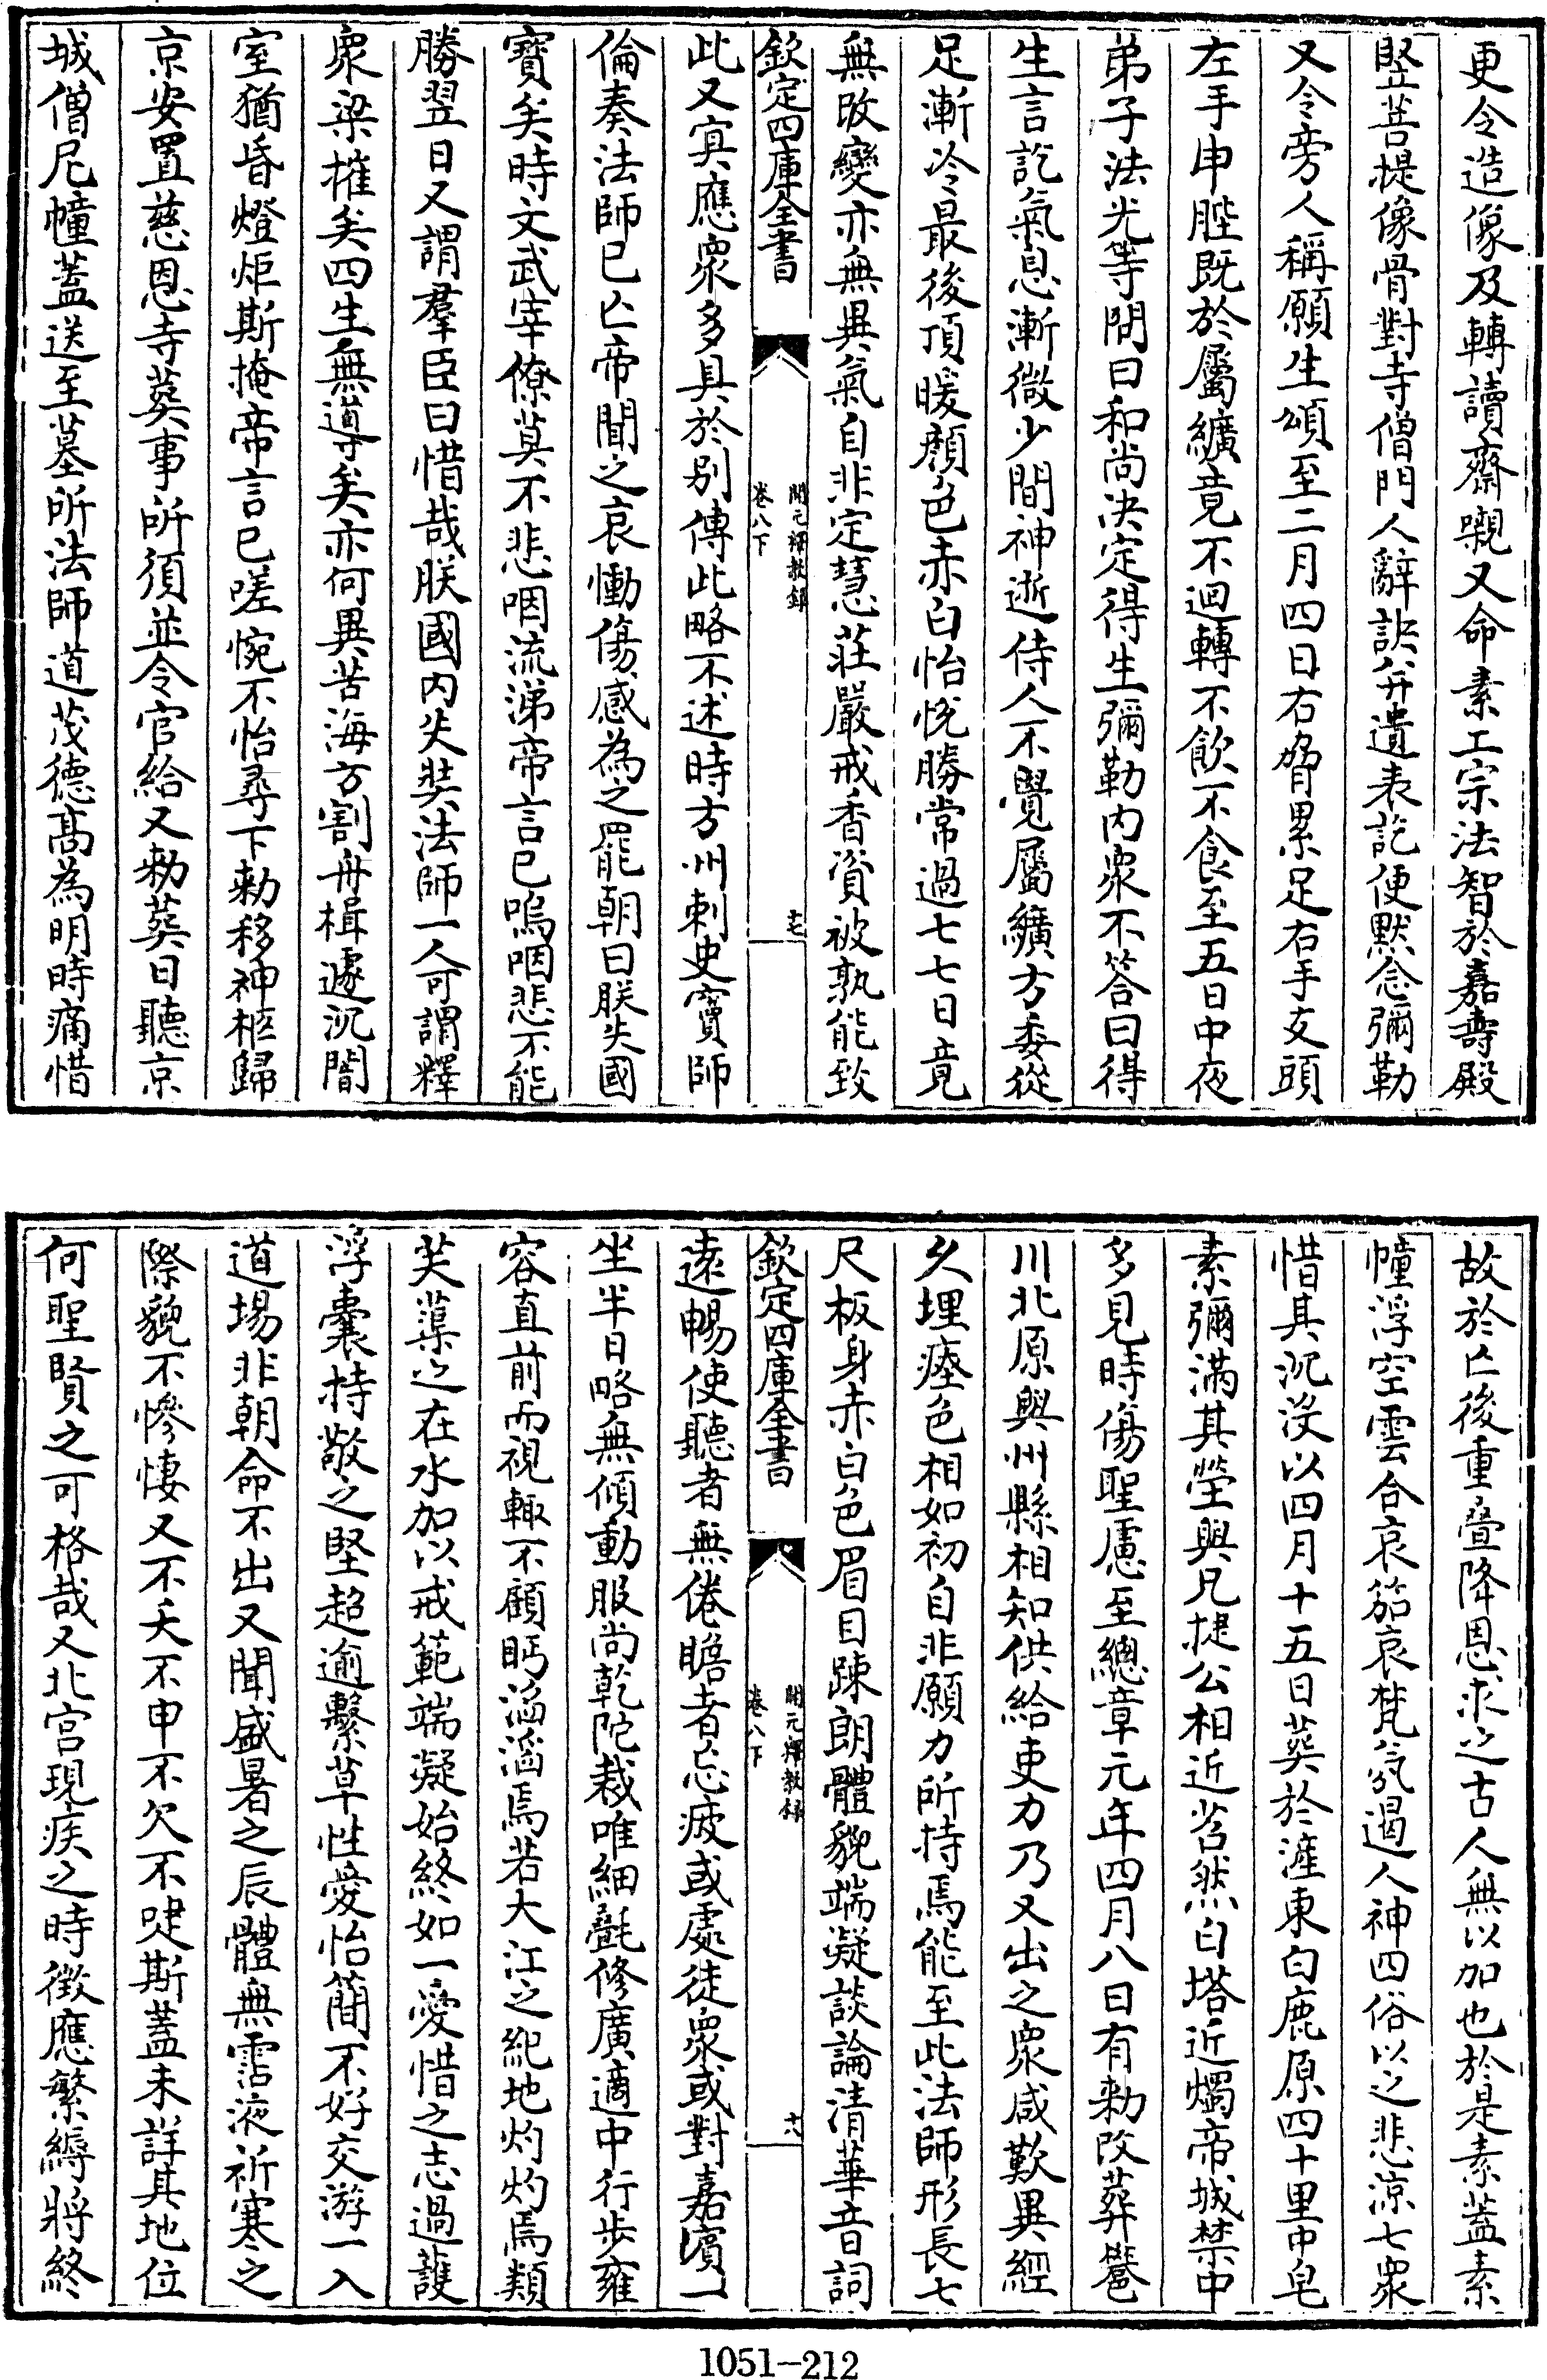 更令造像及轉讀齋嚫又命素工宗法智於嘉壽殿
竪菩提像骨對寺僧門人辭訣并遺表訖便默念彌勒
又令旁人稱願生頌至二月四日右脅累足右手支頭
左手申䏶既於屬纊竟不迴轉不飲不食至五日中夜
弟子法光等問曰和尚決定得生彌勒内衆不答曰得
生言訖氣息漸微少間神逝侍人不覺屬纊方委從
足漸冷最後頂暖顔色赤白怡悦勝常過七七日竟
無改變亦無異氣自非定慧莊嚴戒香資被孰能致
欽定四庫全書
開元釋教録
卷八下
十七
此又冥應衆多具於別傳此略不述時方州刺史竇師
倫奏法師已亡帝聞之哀慟傷感為之罷朝曰朕失國
寶矣時文武宰僚莫不悲咽流涕帝言已嗚咽悲不能
勝翌日又謂羣臣曰惜哉朕國内失奘法師一人可謂釋
衆梁摧矣四生無導矣亦何異苦海方割舟楫遽沉闇
室猶昏燈炬斯掩帝言已嗟惋不怡尋下勅移神柩歸
京安置慈恩寺葬事所須並令官給又勅葬日聽京
城僧尼幢蓋送至墓所法師道茂德髙為明時痛惜
故於亡後重疊降恩求之古人無以加也於是素蓋素
幢浮空雲合哀笳哀梵氛遏人神四俗以之悲涼七衆
惜其沉没以四月十五日葬於滻東白鹿原四十里中皂
素彌滿其塋與兄捷公相近苕然白塔近燭帝城禁中
多見時傷聖慮至總章元年四月八日有勅改葬樊
川北原與州縣相知供給吏力乃又出之衆咸歎異經
久埋瘞色相如初自非願力所持焉能至此法師形長七
尺板身赤白色眉目踈朗體貌端凝談論清華音詞
欽定四庫全書
開元釋教録
卷八下
十八
遠暢使聽者無倦瞻者忘疲或處徒衆或對嘉賓一
坐半日略無傾動服尚乾陀裁唯細氎修廣適中行步雍
容直前而視輒不顧眄滔滔焉若大江之紀地灼灼焉類
芙蕖之在水加以戒範端凝始終如一愛惜之志過護
浮囊持敬之堅超逾繫草性愛怡簡不好交游一入
道場非朝命不出又聞盛暑之辰體無霑液祈寒之
際貌不慘悽又不夭不申不欠不啑斯蓋未詳其地位
何聖賢之可格哉又北宫現疾之時徴應繁縟將終
1051-212